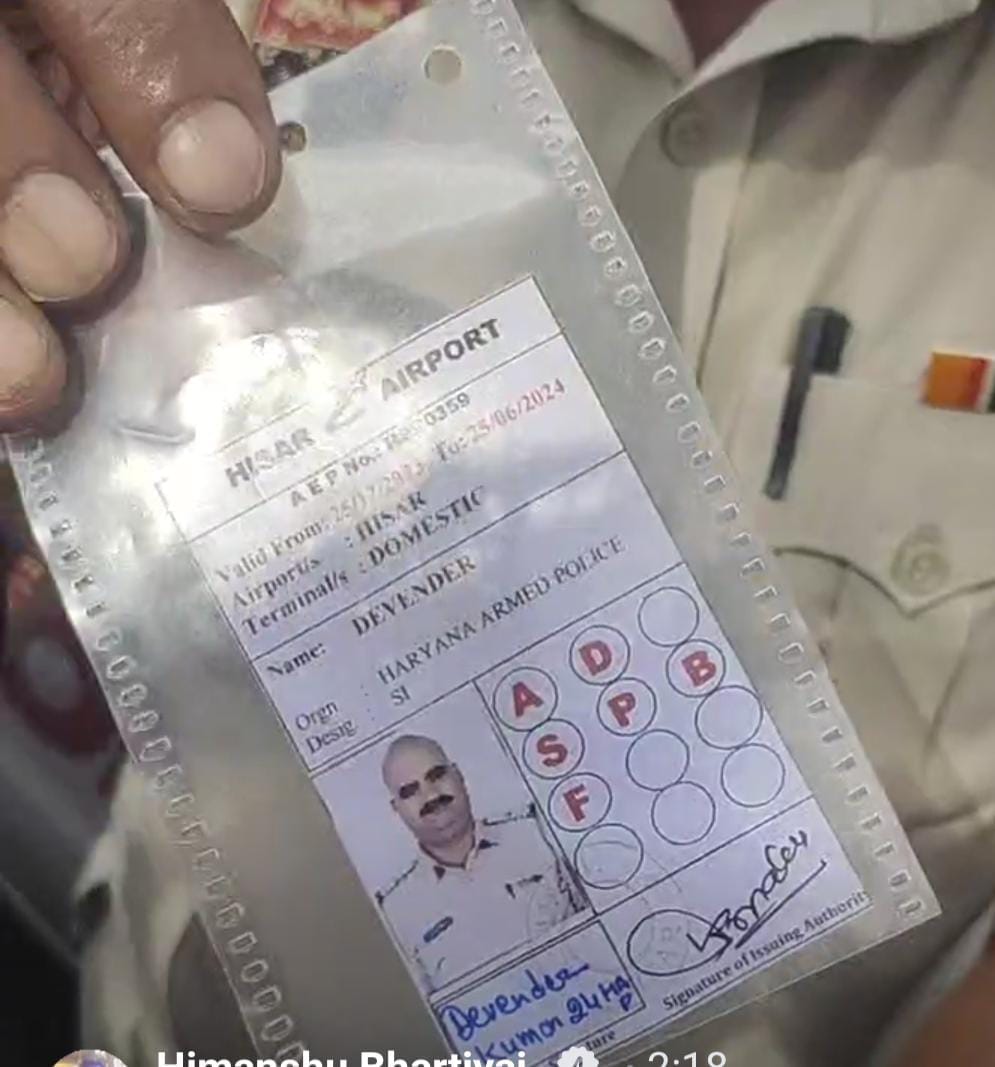 HISAR AIRPORT
A E P No.: 0359
Valid From: To: 25/06/2024
Airport/s : HISAR
Terminal/s : DOMESTIC
Name: DEVENDER
Orgn : HARYANA ARMED POLICE
Desig : SI
A D
S P B
F
Devender
Kumar 24 HAP
Signature of Issuing Authority
Himanshu Bhartiyai 2:18